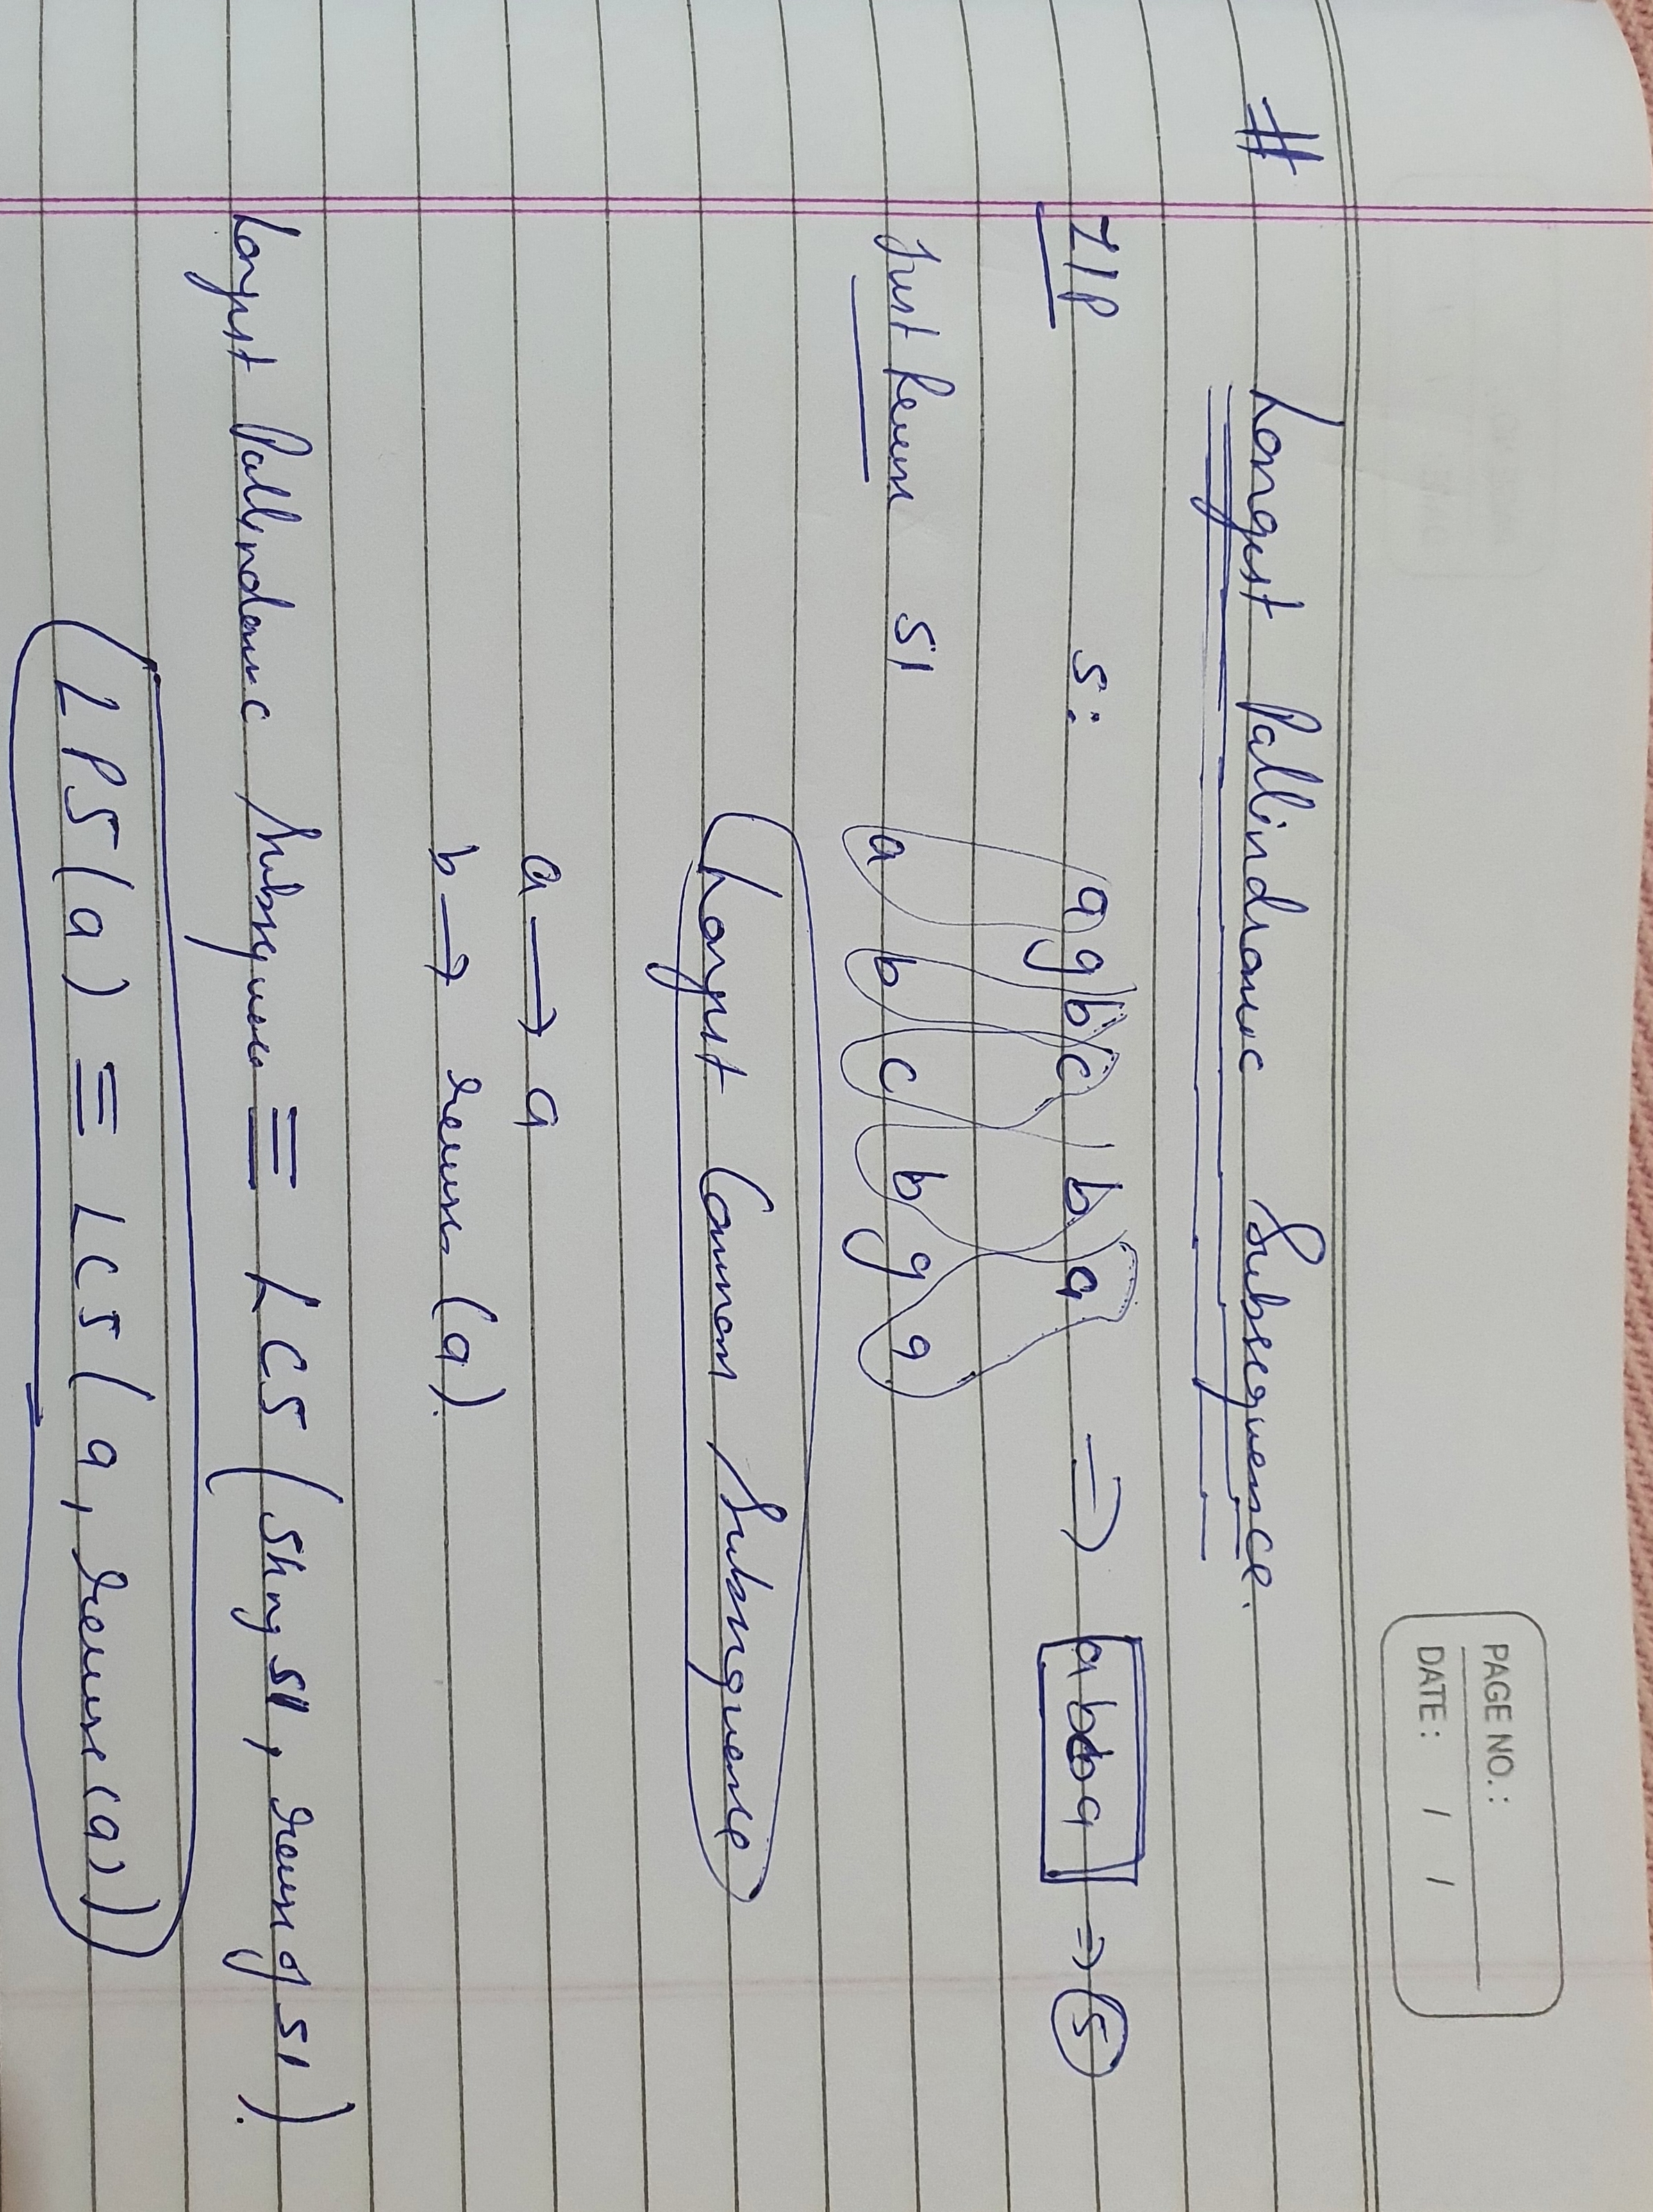 PAGE NO. :
DATE : / /
# Longest Pallindromic Subsequence.
I/P s: a g b c b a => a b c b a => 5
Just Reverse S1 a b c b g a
Longest Common Subsequence
a → a
b → reverse (a).
Longest Pallindromic Subsequence ≡ LCS ( String S1, reverse of S1 ).
LPS(a) ≡ LCS( a, reverse (a))